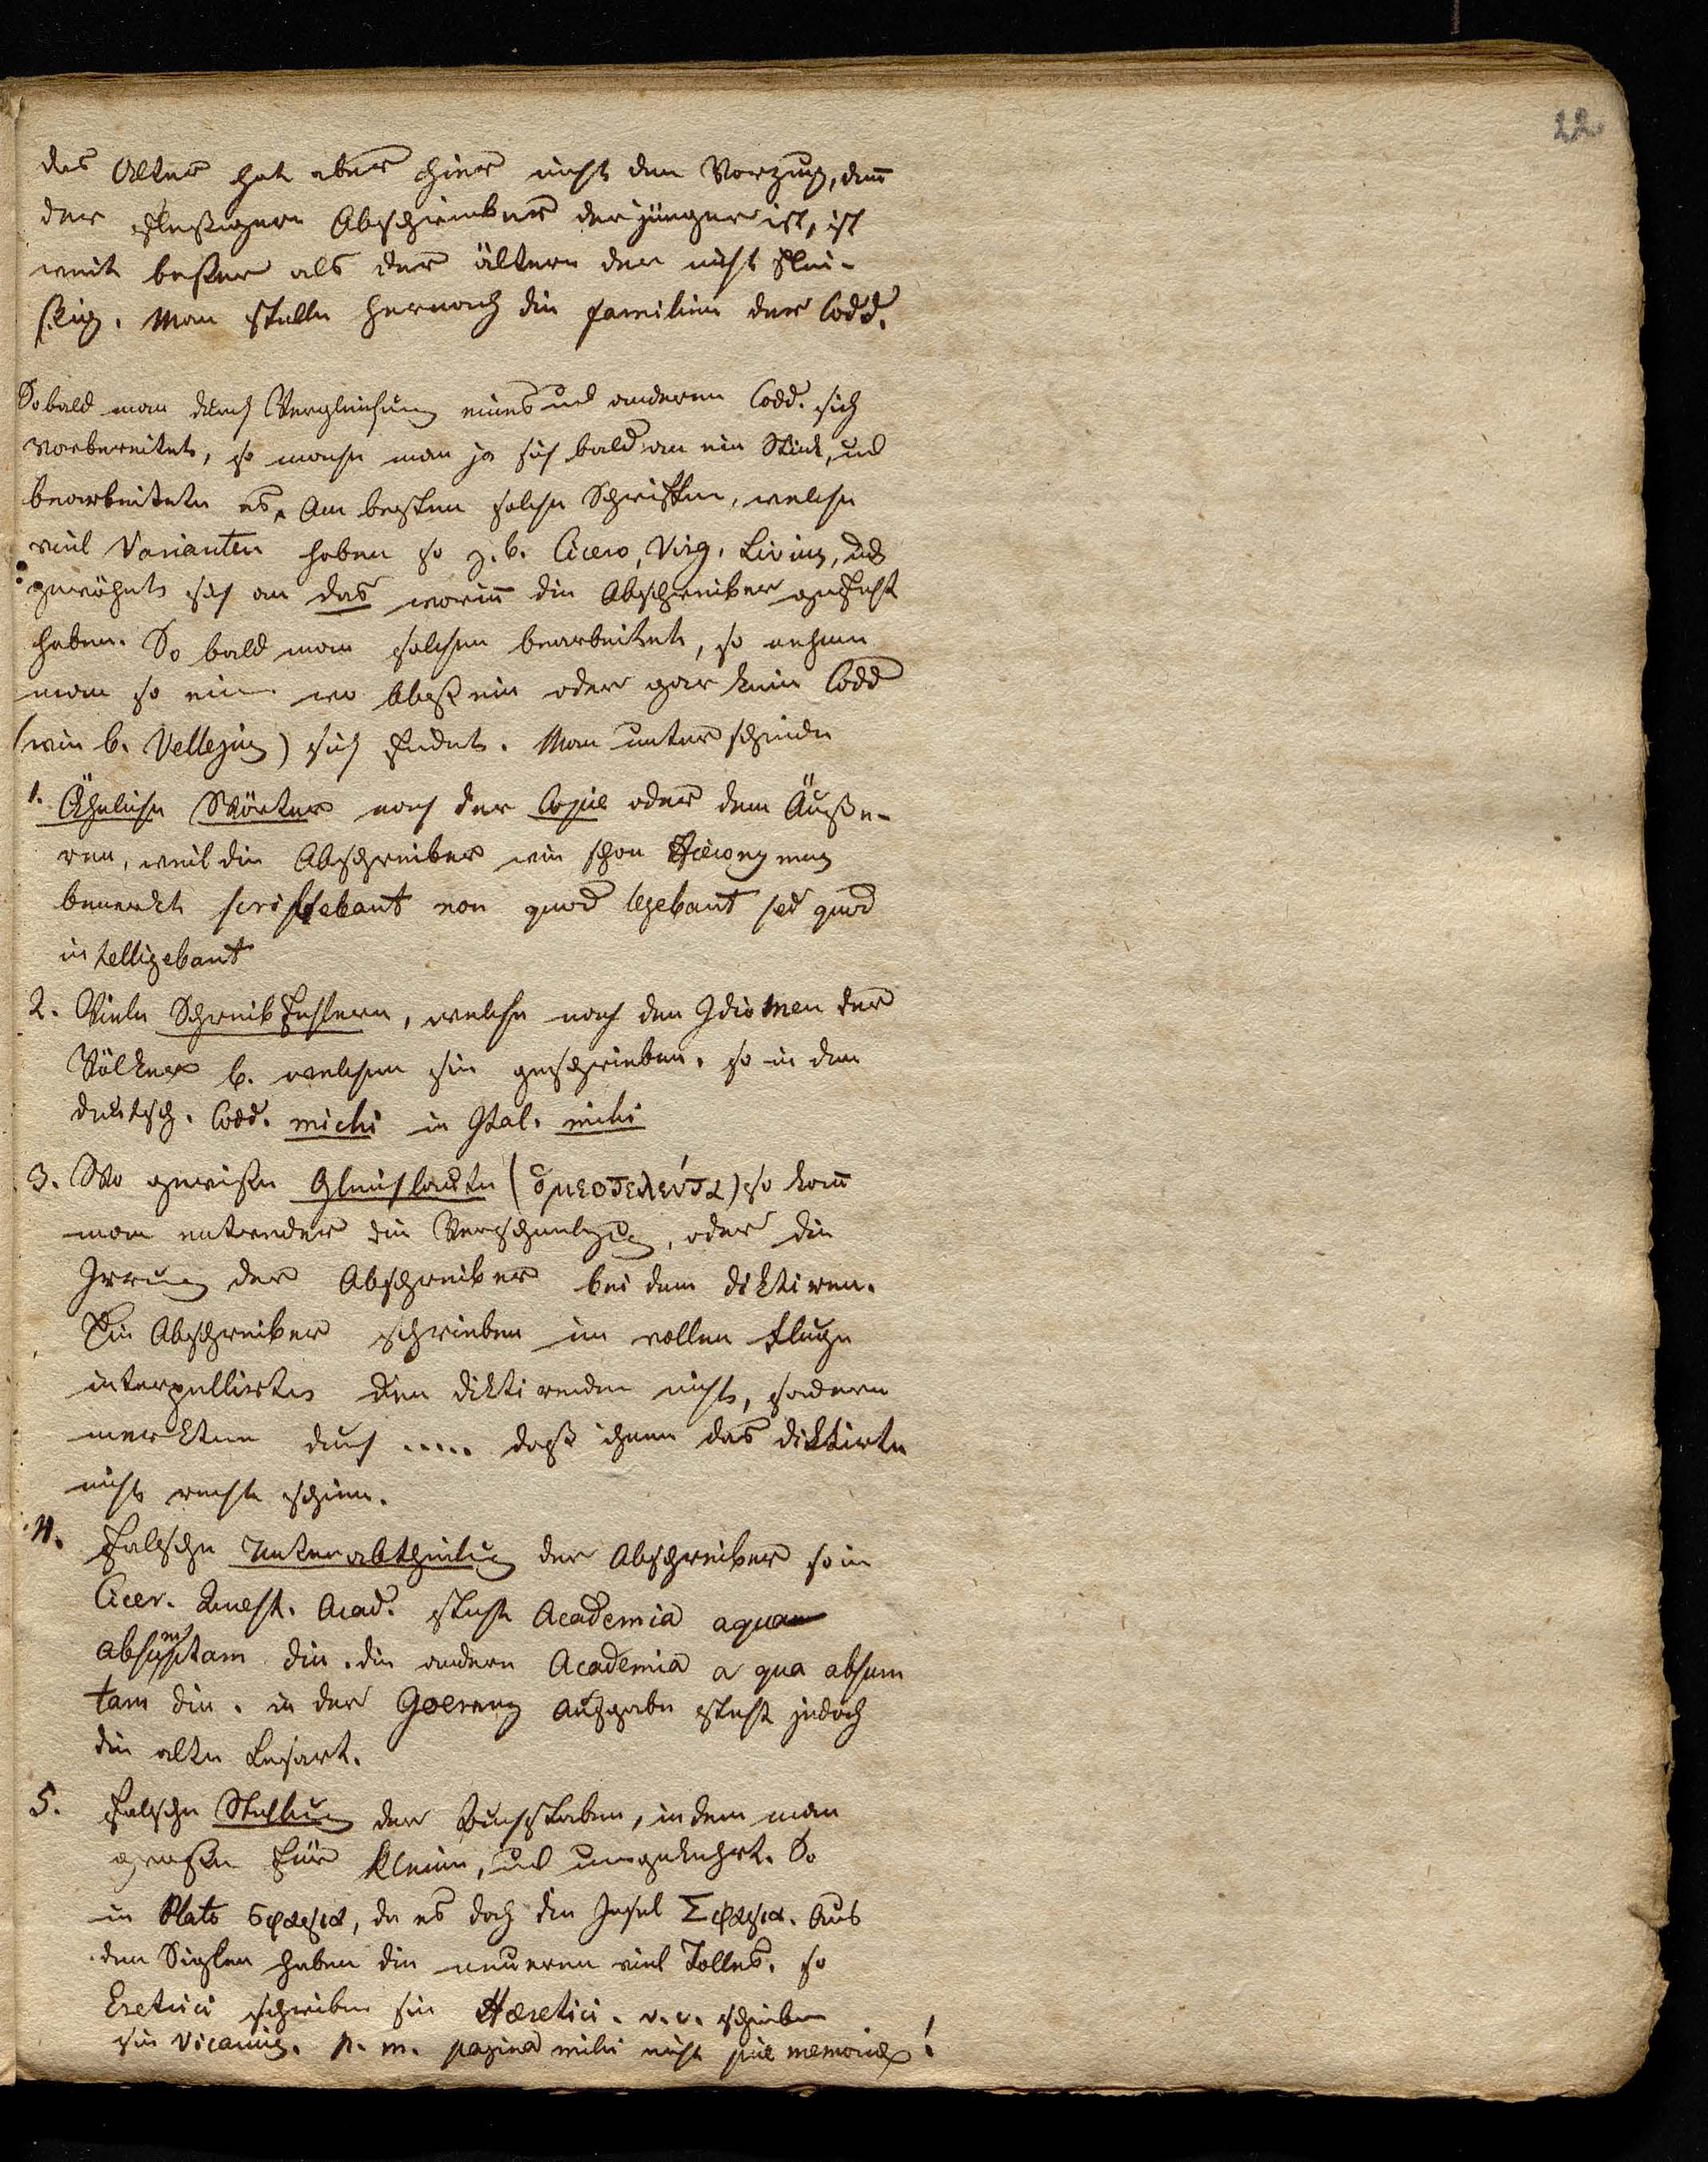 22.
das Alter hat aber hier nicht den Vorzug, deñ
der fleßigere Abschreiber der jünger ist, ist
weit beßer als der ältere der nicht flei-
ßig. Man stelle hernach die familien der Codd.
Sobald man durch Vergleichung eines und anderen Codd. sich
vorbereitet, so mache man ja sich bald an ein Stück, und
bearbeitete es. Am besten solche Schriften, welche
viel Varianten haben so z. b. Cicero, Virg. Livius, und
gewöhnt sich an das woriñ die Abschreiber gefehlt
haben. So bald man solchen bearbeitet, so nehme
man so ein wo bloß ein oder gar kein Codd
(wie b. Vellejus) sich findet. Man unterscheide
1. Ähnliche Wörter nach der Copie oder dem Äuße-
ren, weil die Abschreiber wie schon Hieronymus
bemerkt scribebant non quod legebant sed quod
intelligebant
2. Viele Schreibfehlern, welche nach den Idiomen der
Völker b. welchen sie geschrieben. so in den
deutsch. Codd. michi in Ital. mihi
3. Wo gewiße Gleichlaute (ὁμεοτελεύτα) so kañ
man entweder die Verschmelzung, oder die
Irrung der Abschreiber bei dem diktiren.
Die Abschreiber schrieben im vollen Fluge
interpellirten den diktirenden nicht, sondern
merkten durch ..... daß ihnen das diktirte
nicht recht schien.
4. Falsche Unterabtheilung der Abschreiber so in
Cicer. Quest. Acad. steht Academia aquam
absumtam diu. die andern Academia a qua absum
tam diu. in der Goerenz Ausgabe steht jedoch
die alte Lesart.
5. Falsche Stellung der Buchstaben, indem man
große für kleine, und umgekehrt. So
in Plato σφαγια, da es doch die Insel Σφαγια. Aus
den Siglen haben die neueren viel Tolles. so
Eretrici schreiben sie Hæretici. v. c. schreiben
sie Vicarius. p. m. pagina mihi nicht piæ memoriæ!